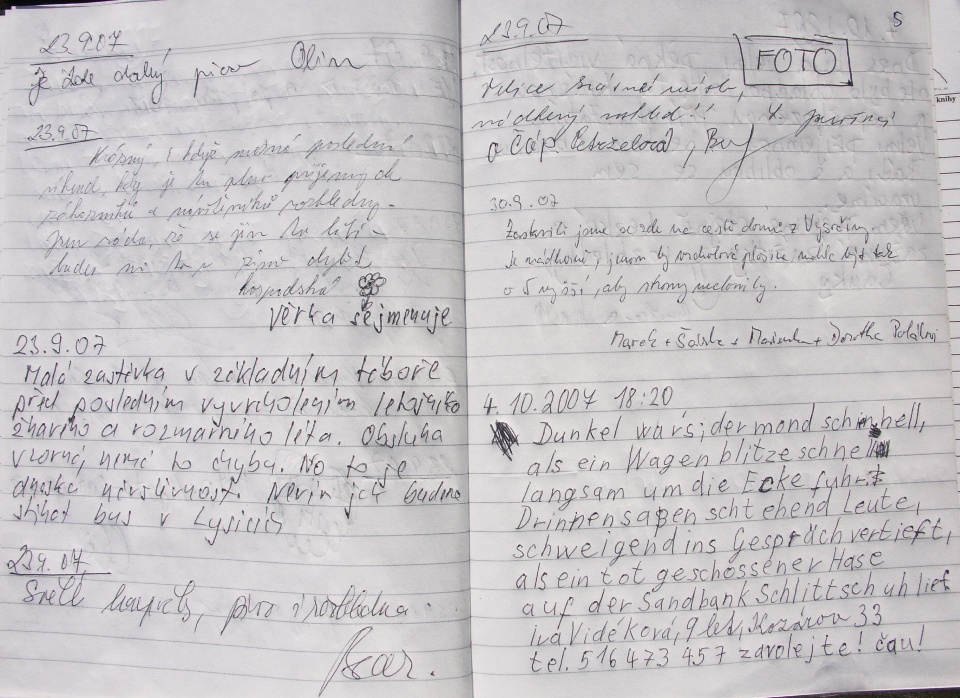 23.9.07
je zde dobrý pivo Olin
23.9.07
Krásný, i když možná poslední
víkend, kdy je tu plno příjemných
zákazníků a návštěvníků rozhledny.
Jsem ráda, že se jim tu líbí -
bude mi to v zimě chybět
hospodská
Věrka sejmenuje
23.9.07
Malá zastávka v základním táboře
před posledním vyvrcholením letošního
žhavého a rozmarného léta. Obsluha
vzorná, nemá to chyby. No to je
dneska návštěvnost. Nevím jak budeme
stíhat bus v Lysicích
23.9.07
Svět kapely, pivo i rozhledna.
23.9.07
5
FOTO
Velice krásné místo,
nádherný rozhled!!
a Čáp. Petrželová,
30.9.07
Zastavili jsme se zde na cestě domů z Vysočiny.
Je nádherně, jenom ty vrcholové plošice, mohla být tak
o 5 m výši, aby stromy neclonily.
Marek + Šárka + Maruska + Dorotka Polákovi
4. 10. 2007 18:20
Dunkel wars, der mond schin hell,
als ein Wagen blitze schnell
langsam um die Ecke fuhr
Drinnen saßen scht ehend Leute,
schweigend ins Gespräch vertieft,
als ein tot geschossener Hase
auf der Sandbank Schlittschuh lief
iva Vidéková, 9 let, Kozárov 33
tel. 516 473 457 zavolejte! čau!
knihy